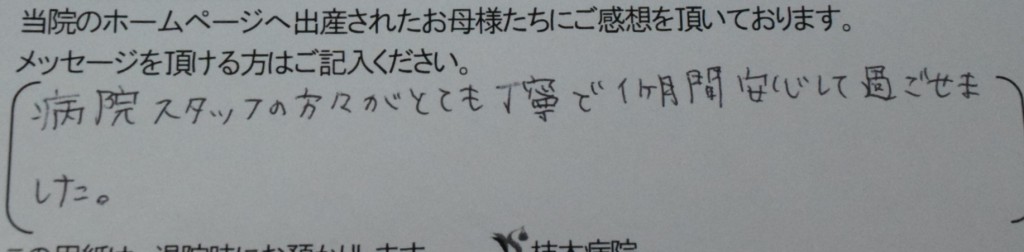 当院のホームページへ出産されたお母様たちにご感想を頂いております。
メッセージを頂ける方はご記入ください。
病院スタッフの方々がとても丁寧で1ヶ月間安心して過ごせま
した。
この用紙は、退院時にお預かりします
病院